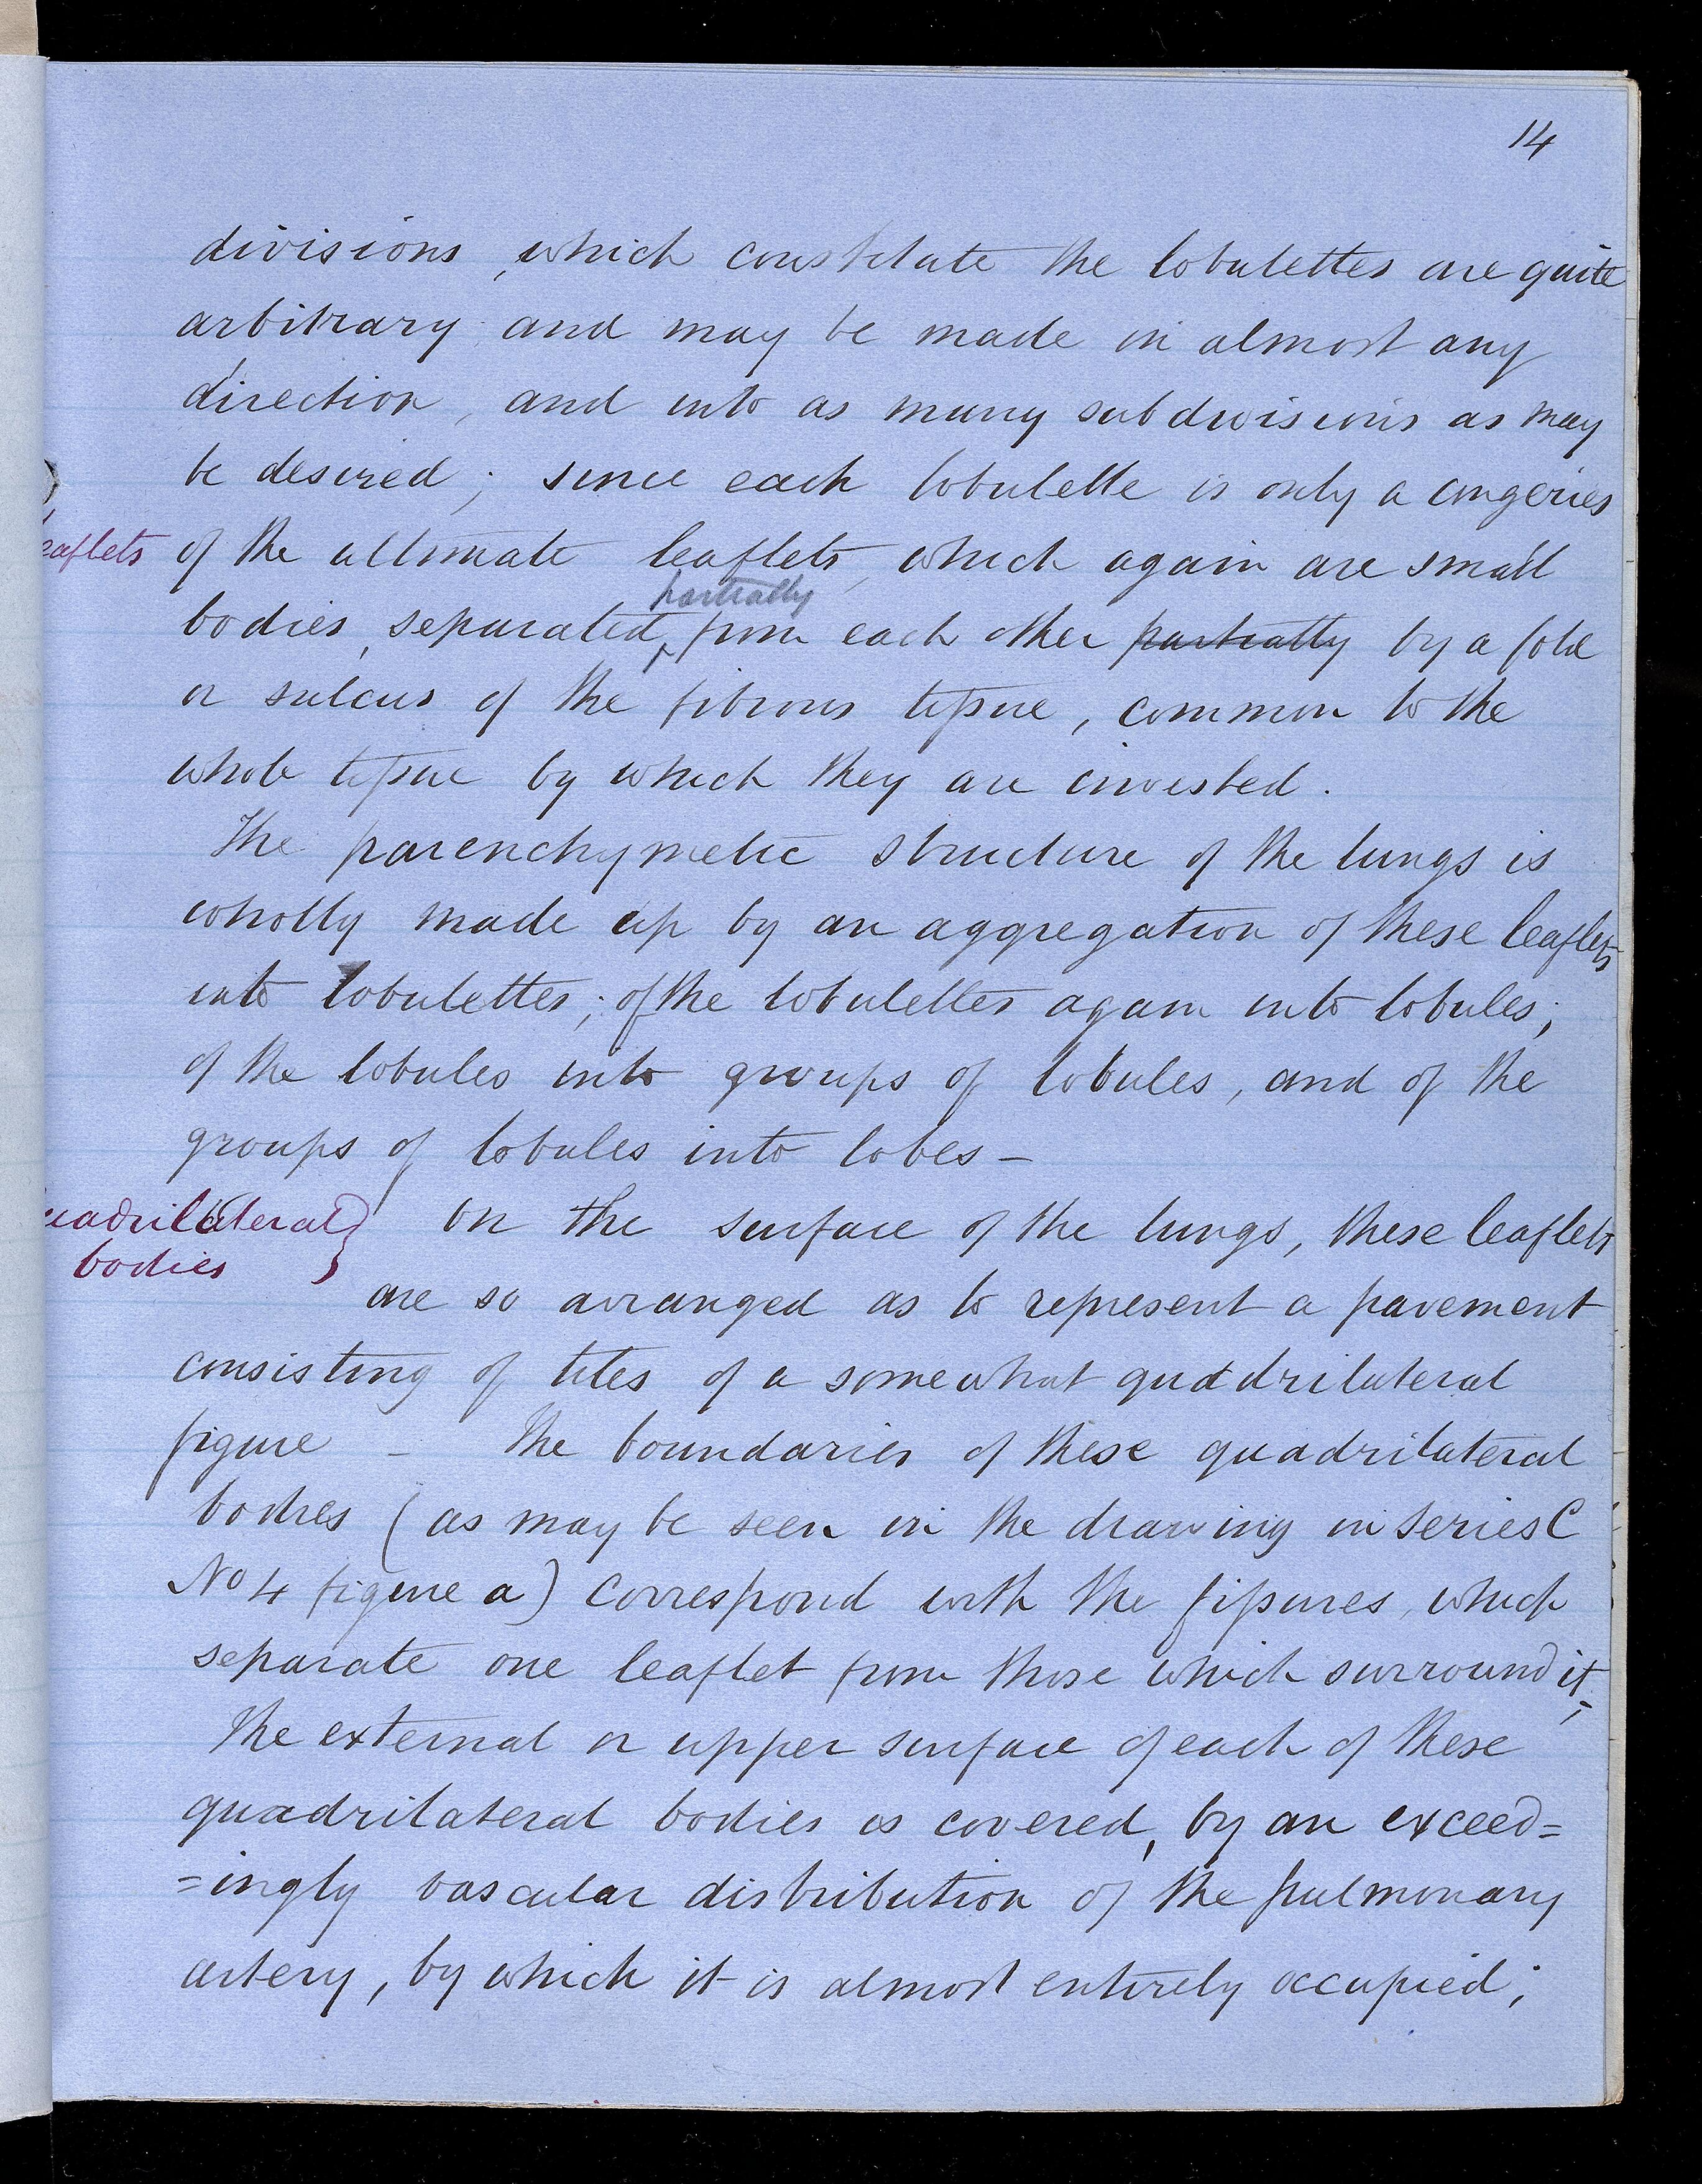 14
divisions, which constitute the lobulettes are quite
arbitrary and may be made in almost any
direction, and into as many subdivisions as may
be desired; since each lobulette is only a congeries
eaflets of the ultimate leaflets, which again are small
partially
bodies, separated, from each other partially by a fold
or sulcus of the fibrous tissue, common to the
whole tissue by which they are invested.
The parenchymetic structure of the lungs is
wholly made up by an aggregation of these leaflets
into lobulettes; of the lobulettes again into lobules;
of the lobules into groups of lobules, and of the
groups of lobules into lobes -
uadrilateral } On the surface of the lungs, these leaflets
bodies
are so arranged as to represent a pavement
consisting of tiles of a somewhat quadrilateral
figure - The boundaries of these quadrilateral
bodies (as may be seen in the drawing in series C
No 4 figure a) correspond with the fissures, which
separate one leaflet from those which surround it,
The external or upper surface of each of these
quadrilateral bodies is covered, by an exceed=
=ingly vascular distribution of the pulmonary
artery, by which it is almost entirely occupied;